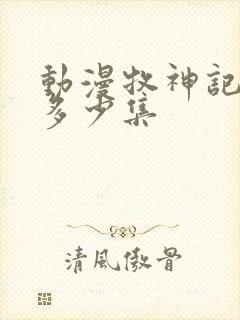 動漫牧神記
多少集
清風傲骨